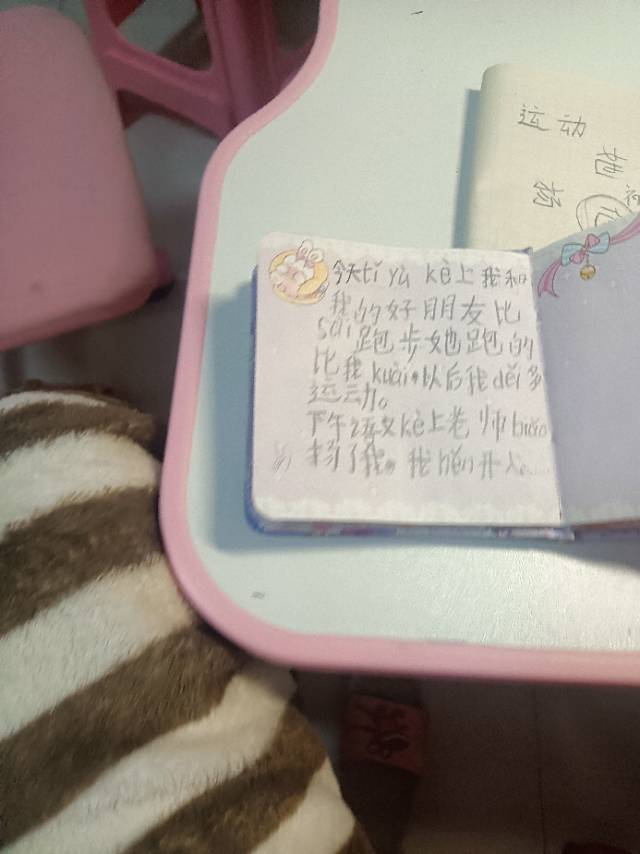 运动
今天tǐ yù kè上我和
我的好朋友比
sài跑步她跑的
比我kuài。以后我děi多
运动。
下午语文kè上老师biǎo
扬了我。我hěn开心。